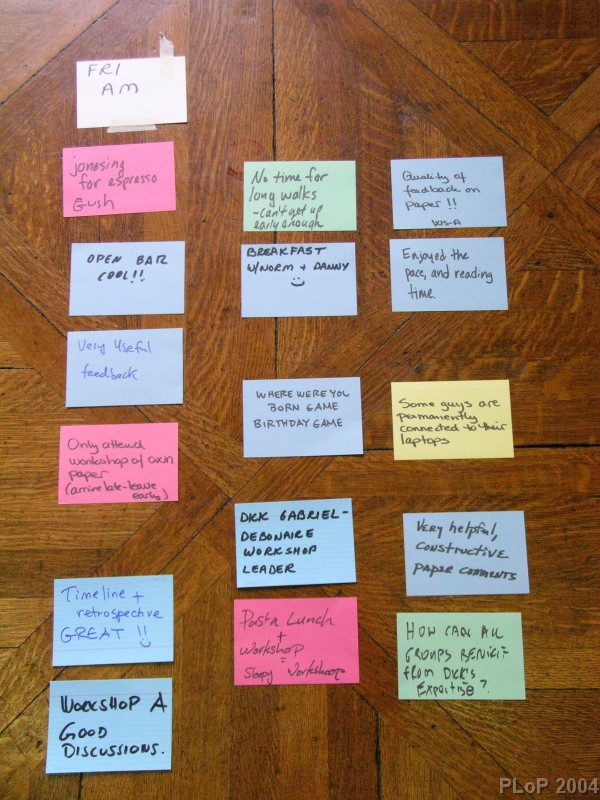 FRI
AM
jonesing
for espresso
Gush
OPEN BAR
COOL!!
Very Useful
feedback
Only attend
workshop of own
paper
(arrive late-leave
early)
Timeline +
retrospective
GREAT !!
WORKSHOP A
GOOD
DISCUSSIONS.
No time for
long walks
-can't get up
early enough
BREAKFAST
W/NORM + DANNY
WHERE WERE YOU
BORN GAME
BIRTHDAY GAME
DICK GABRIEL -
DEBONAIRE
WORKSHOP
LEADER
Pasta Lunch
+
Workshop
=
Sleepy Workshop
Quality of
feedback on
paper !!
Enjoyed the
pace, and reading
time.
Some guys are
permanently
connected to their
laptops
Very helpful,
constructive
paper comments
HOW CAN ALL
GROUPS BENEFIT
FROM DICK'S
EXPERTISE?
PLoP 2004